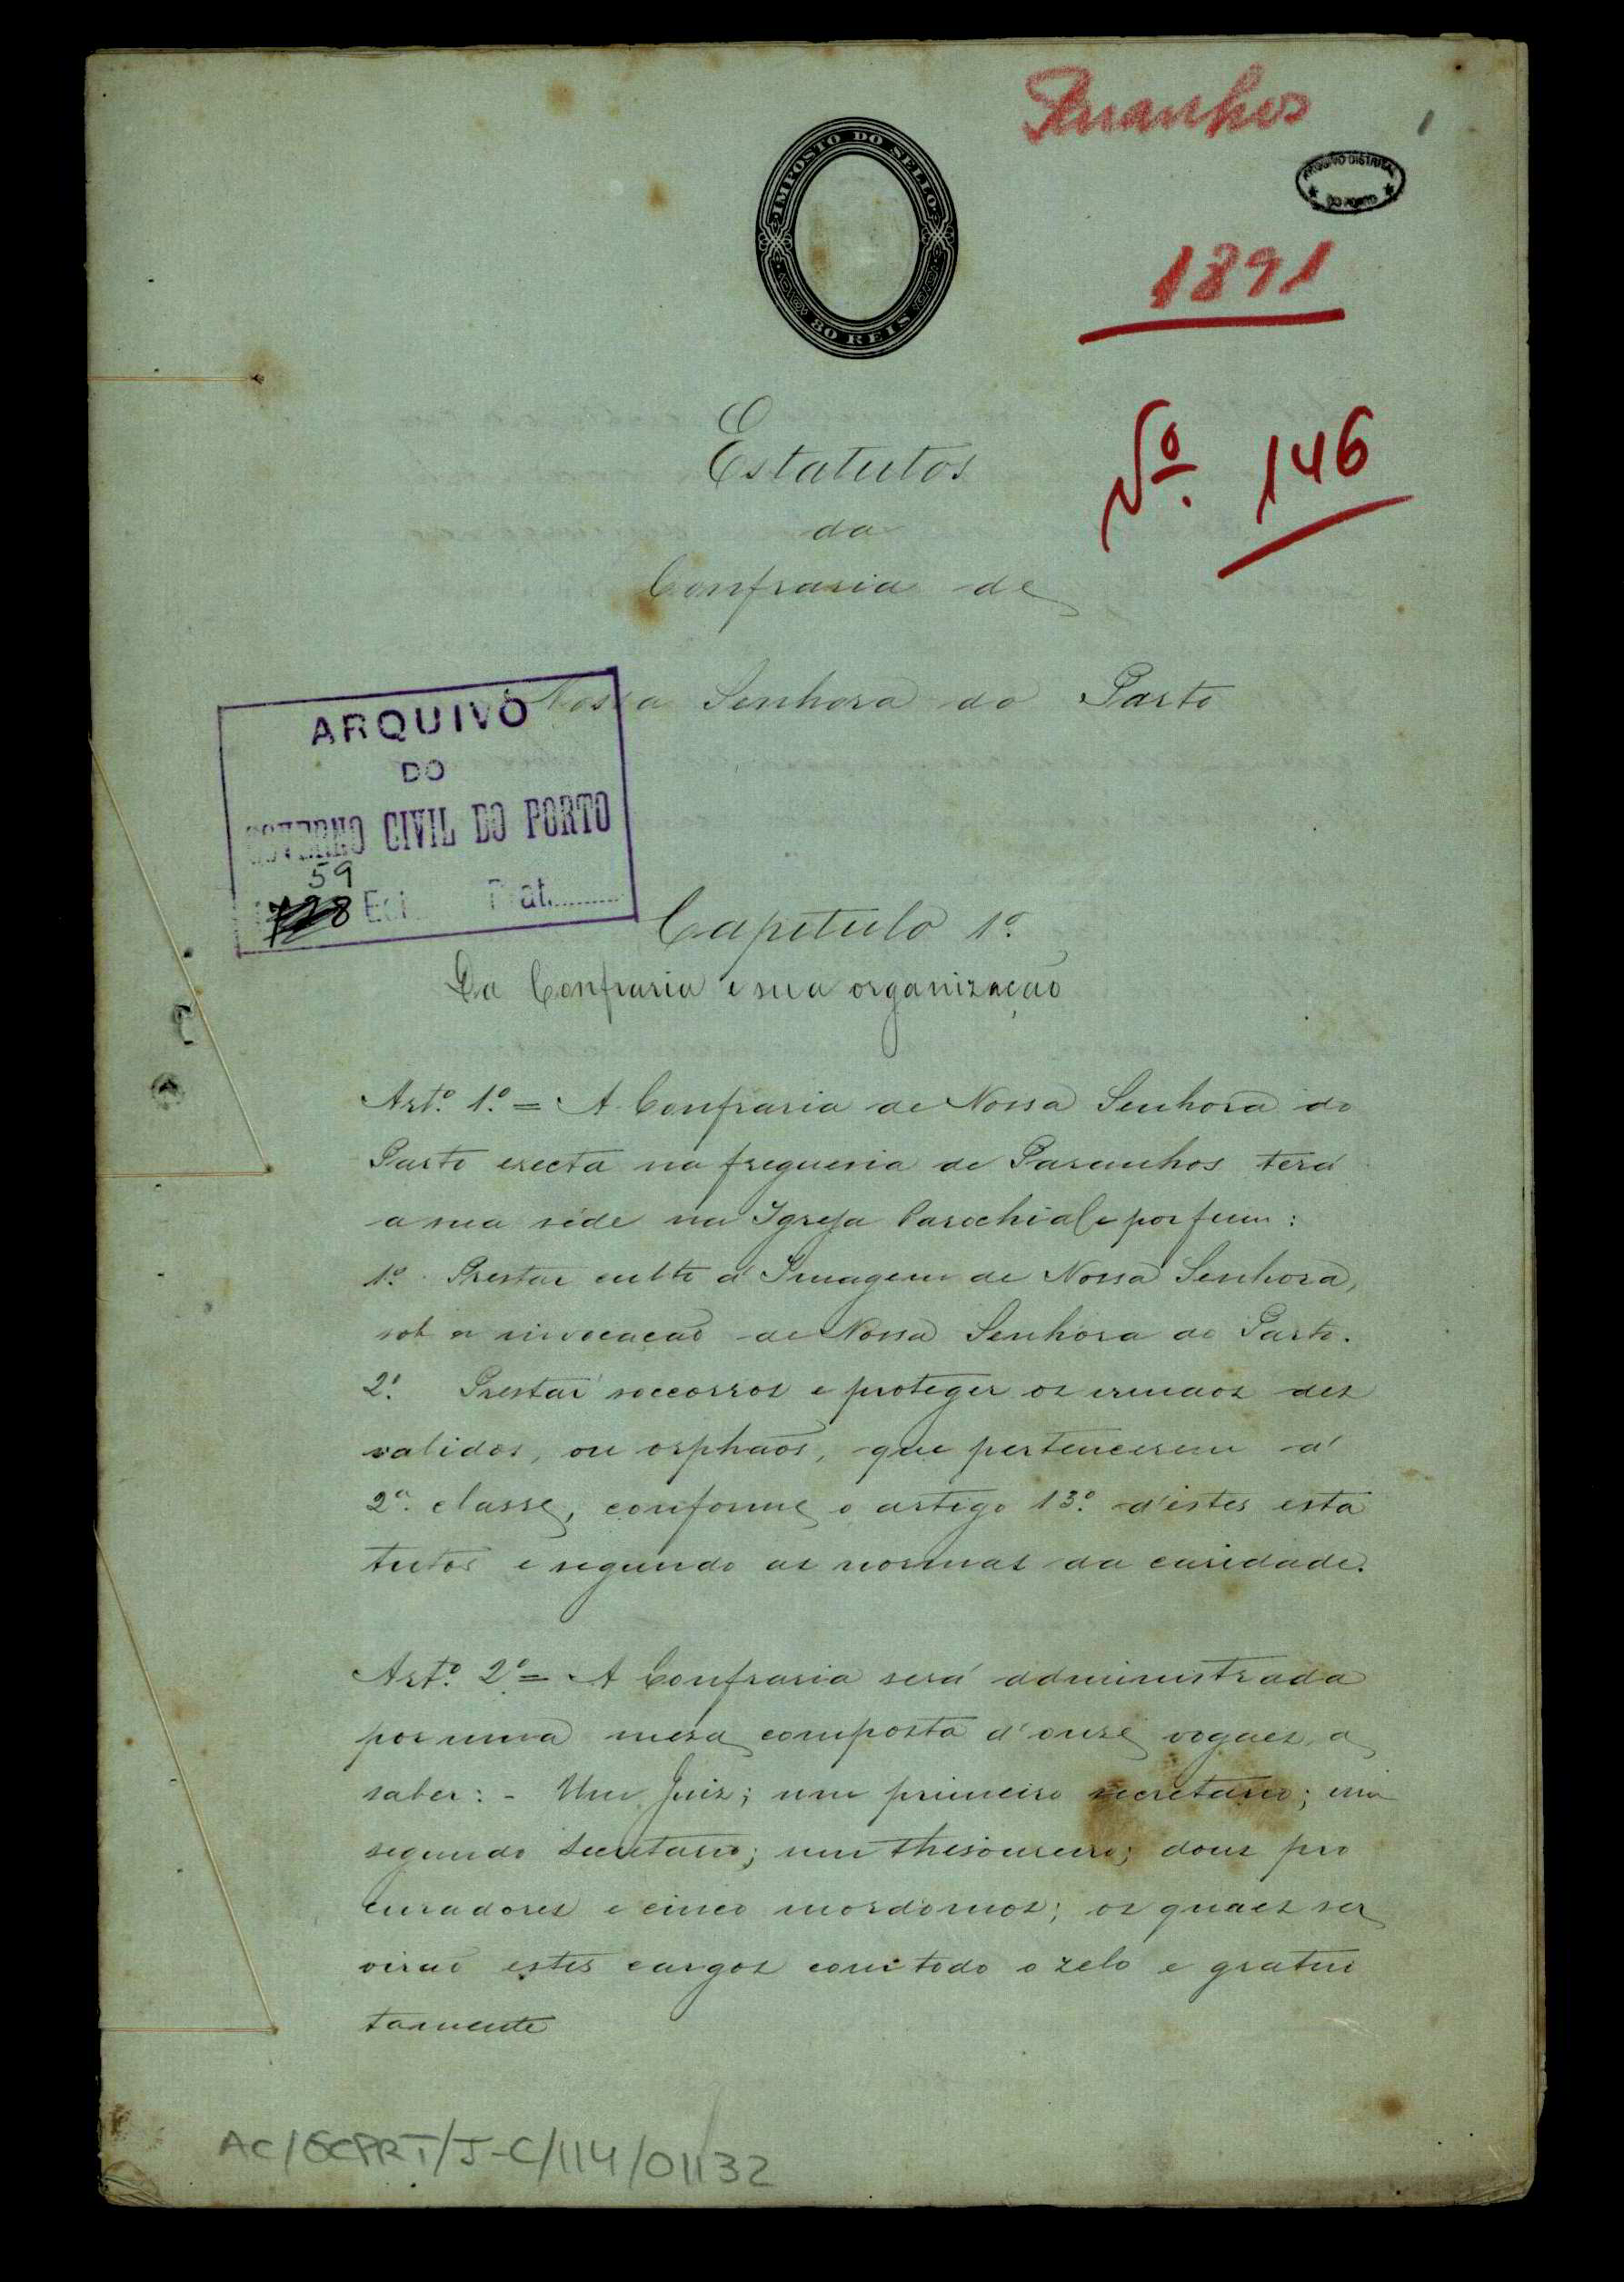 Paranhos
1
ARQUIVO DISTRITAL
DO PORTO
IMPOSTO DO SELLO
80 REIS
1891
Nº. 146
Estatutos
da
Confraria de
Nossa Senhora do Parto
ARQUIVO
DO
GOVERNO CIVIL DO PORTO
59
728 Est. Prat.
Capitulo 1º
Da Confraria e sua organização
Artº. 1º. = A Confraria de Nossa Senhora do
Parto erecta na freguesia de Paranhos terá
a sua séde na Igreja Parochial e por fim:
1º. Prestar culto á Imagem de Nossa Senhora,
sob a invocação de Nossa Senhora do Parto.
2º. Prestar soccorros e proteger os irmãos des
validos, ou orphãos, que pertencerem á
2ª. classe, conforme o artigo 13º. d'estes esta
tutos e segundo as normas da caridade.
Artº. 2º = A Confraria será administrada
por uma mesa composta d'onze vogaes, a
saber: - Um Juiz; um primeiro secretario; um
segundo secretario; um thesoureiro; dous pro
curadores e cinco mordomos; os quaes ser
virão estes cargos com todo o zelo e gratui
tamente
AC/GCPRT/J-C/114/01132